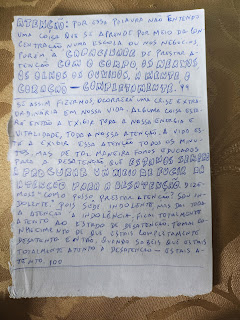 ATENÇÃO: POR ESSA PALAVRA NÃO ENTENDO
UMA COISA QUE SE APRENDE POR MEIO DA CON
CENTRAÇÃO NUMA ESCOLA OU NOS NEGÓCIOS,
PORÉM A CAPACIDADE DE PRESTAR A-
TENÇÃO COM O CORPO, OS NERVOS
OS OLHOS OS OUVIDOS, A MENTE O
CORAÇÃO — COMPLETAMENTE.
SE ASSIM FIZERMOS, OCORRERÁ UMA CRISE EXTRA
ORDINÁRIA EM NOSSA VIDA. ALGUMA COISA ESTA-
RÁ ENTÃO A EXIGIR TODA A NOSSA ENERGIA E
VITALIDADE, TODA A NOSSA ATENÇÃO. A VIDA ES-
TÁ A EXIGIR ESSA ATENÇÃO TODOS OS MINU-
TOS, MAS DE TAL MANEIRA FOMOS EDUCADOS
PARA A DESATENÇÃO QUE ESTAMOS SEMPRE
A PROCURAR UM MEIO DE FUGIR DA
ATENÇÃO PARA A DESATENÇÃO. DIZE-
MOS: "COMO POSSO PRESTAR ATENÇÃO? SOU IN-
DOLENTE". POIS SEDE INDOLENTE MAS DAI TODA
A ATENÇÃO À INDOLÊNCIA. FICAI TOTALMENTE
ATENTO AO ESTADO DE DESATENÇÃO. TOMAI CO-
NHECIMENTO DE QUE ESTAIS COMPLETAMENTE
DESATENTO. ENTÃO, QUANDO SABEIS QUE ESTAIS
TOTALMENTE ATENTO À DESATENÇÃO — ESTAIS A-
TENTO.